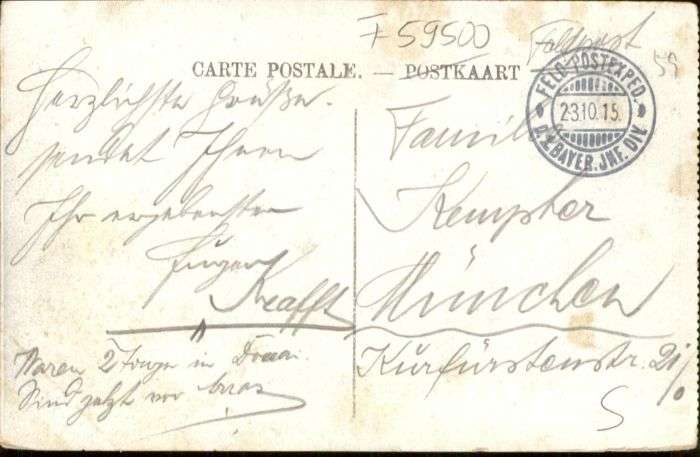 F 59500
Feldpost
59
CARTE POSTALE. — POSTKAART
FELD-POSTEXPED.
23.10.15.
BAYER. JNF. DIV.
Herzlichste Grüße
sendet Ihnen
Ihr ergebenster
Krafft
Waren 2 Tage in Douai.
Sind jetzt vor Arras
Familie
Kempter
München
Kurfürstenstr.
S